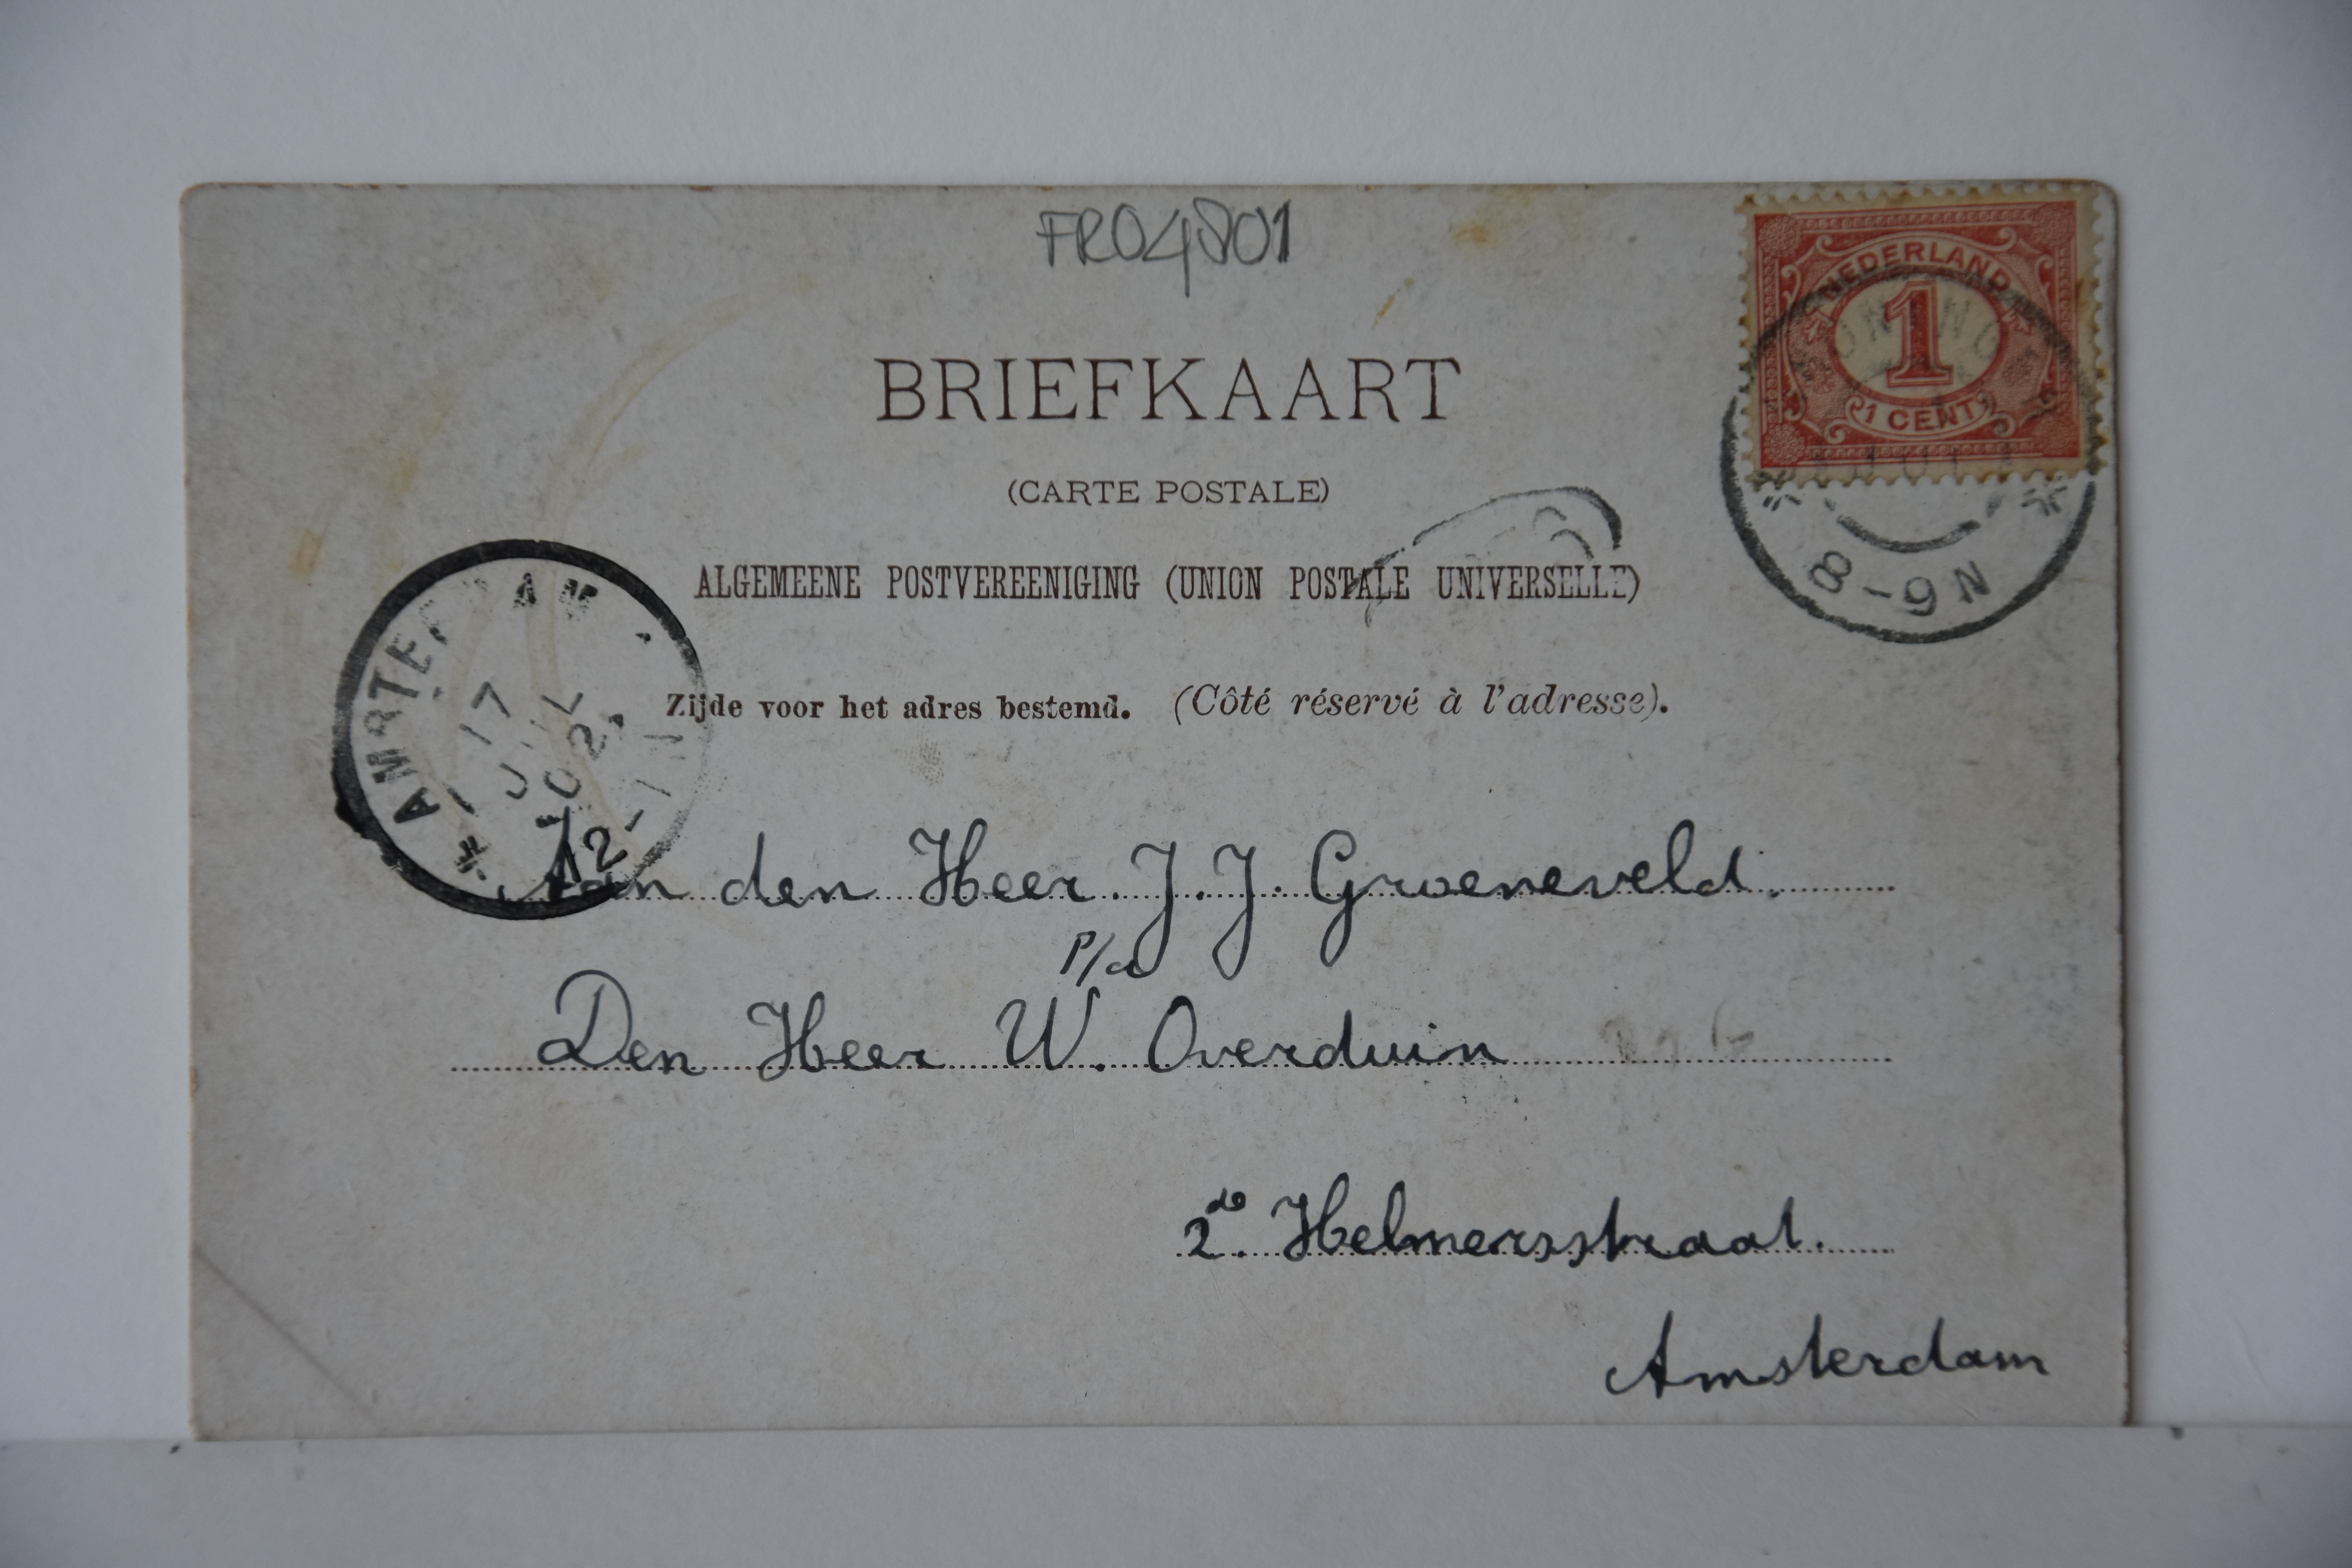 FR04801
NEDERLAND
1
1 CENT
8-9N
BRIEFKAART
(CARTE POSTALE)
ALGEMEENE POSTVEREENIGING (UNION POSTALE UNIVERSELLE)
Zijde voor het adres bestemd. (Côté réservé à l'adresse).
AMSTERDAM
17
JUL
02
12-1N
Aan den Heer J.J. Groeneveld.
P/a
Den Heer W. Overduin
2de Helmersstraat.
Amsterdam